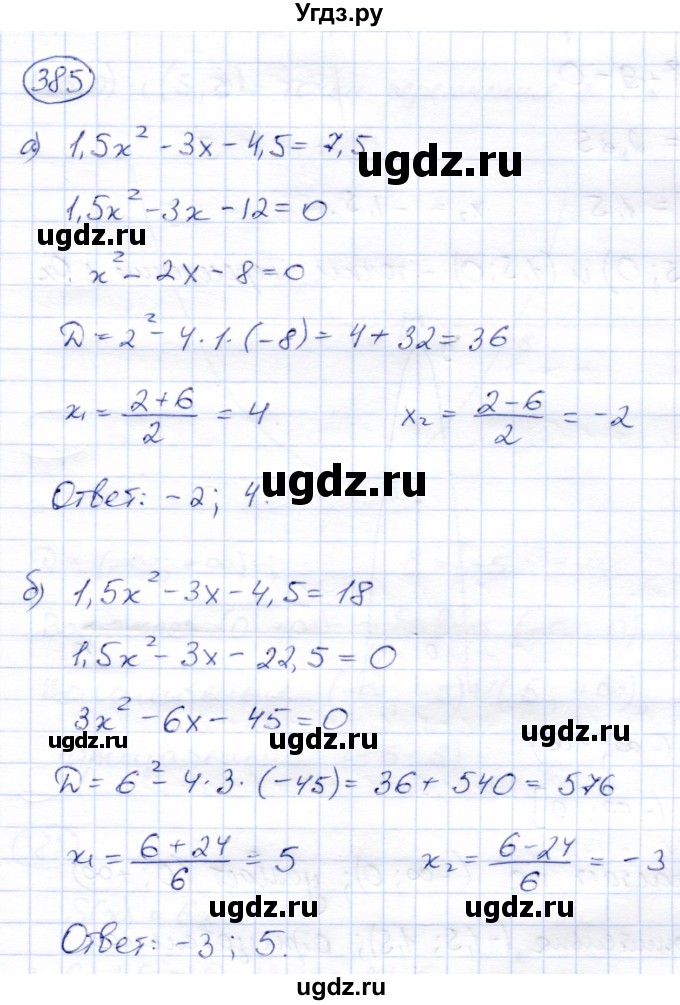 Угдз.ру
385
а) 1,5x² - 3x - 4,5 = 7,5
ugdz.ru
1,5x² - 3x - 12 = 0
ugdz.ru
x² - 2x - 8 = 0
Д = 2² - 4·1·(-8) = 4 + 32 = 36
x₁ = (2+6)/2 = 4 x₂ = (2-6)/2 = -2
ugdz.ru
Ответ: -2; 4.
б) 1,5x² - 3x - 4,5 = 18
1,5x² - 3x - 22,5 = 0
3x² - 6x - 45 = 0
ugdz.ru ugdz.ru ugdz.ru
Д = 6² - 4·3·(-45) = 36 + 540 = 576
x₁ = (6+24)/6 = 5 x₂ = (6-24)/6 = -3
ugdz.ru ugdz.ru
Ответ: -3; 5.
ugdz.ru